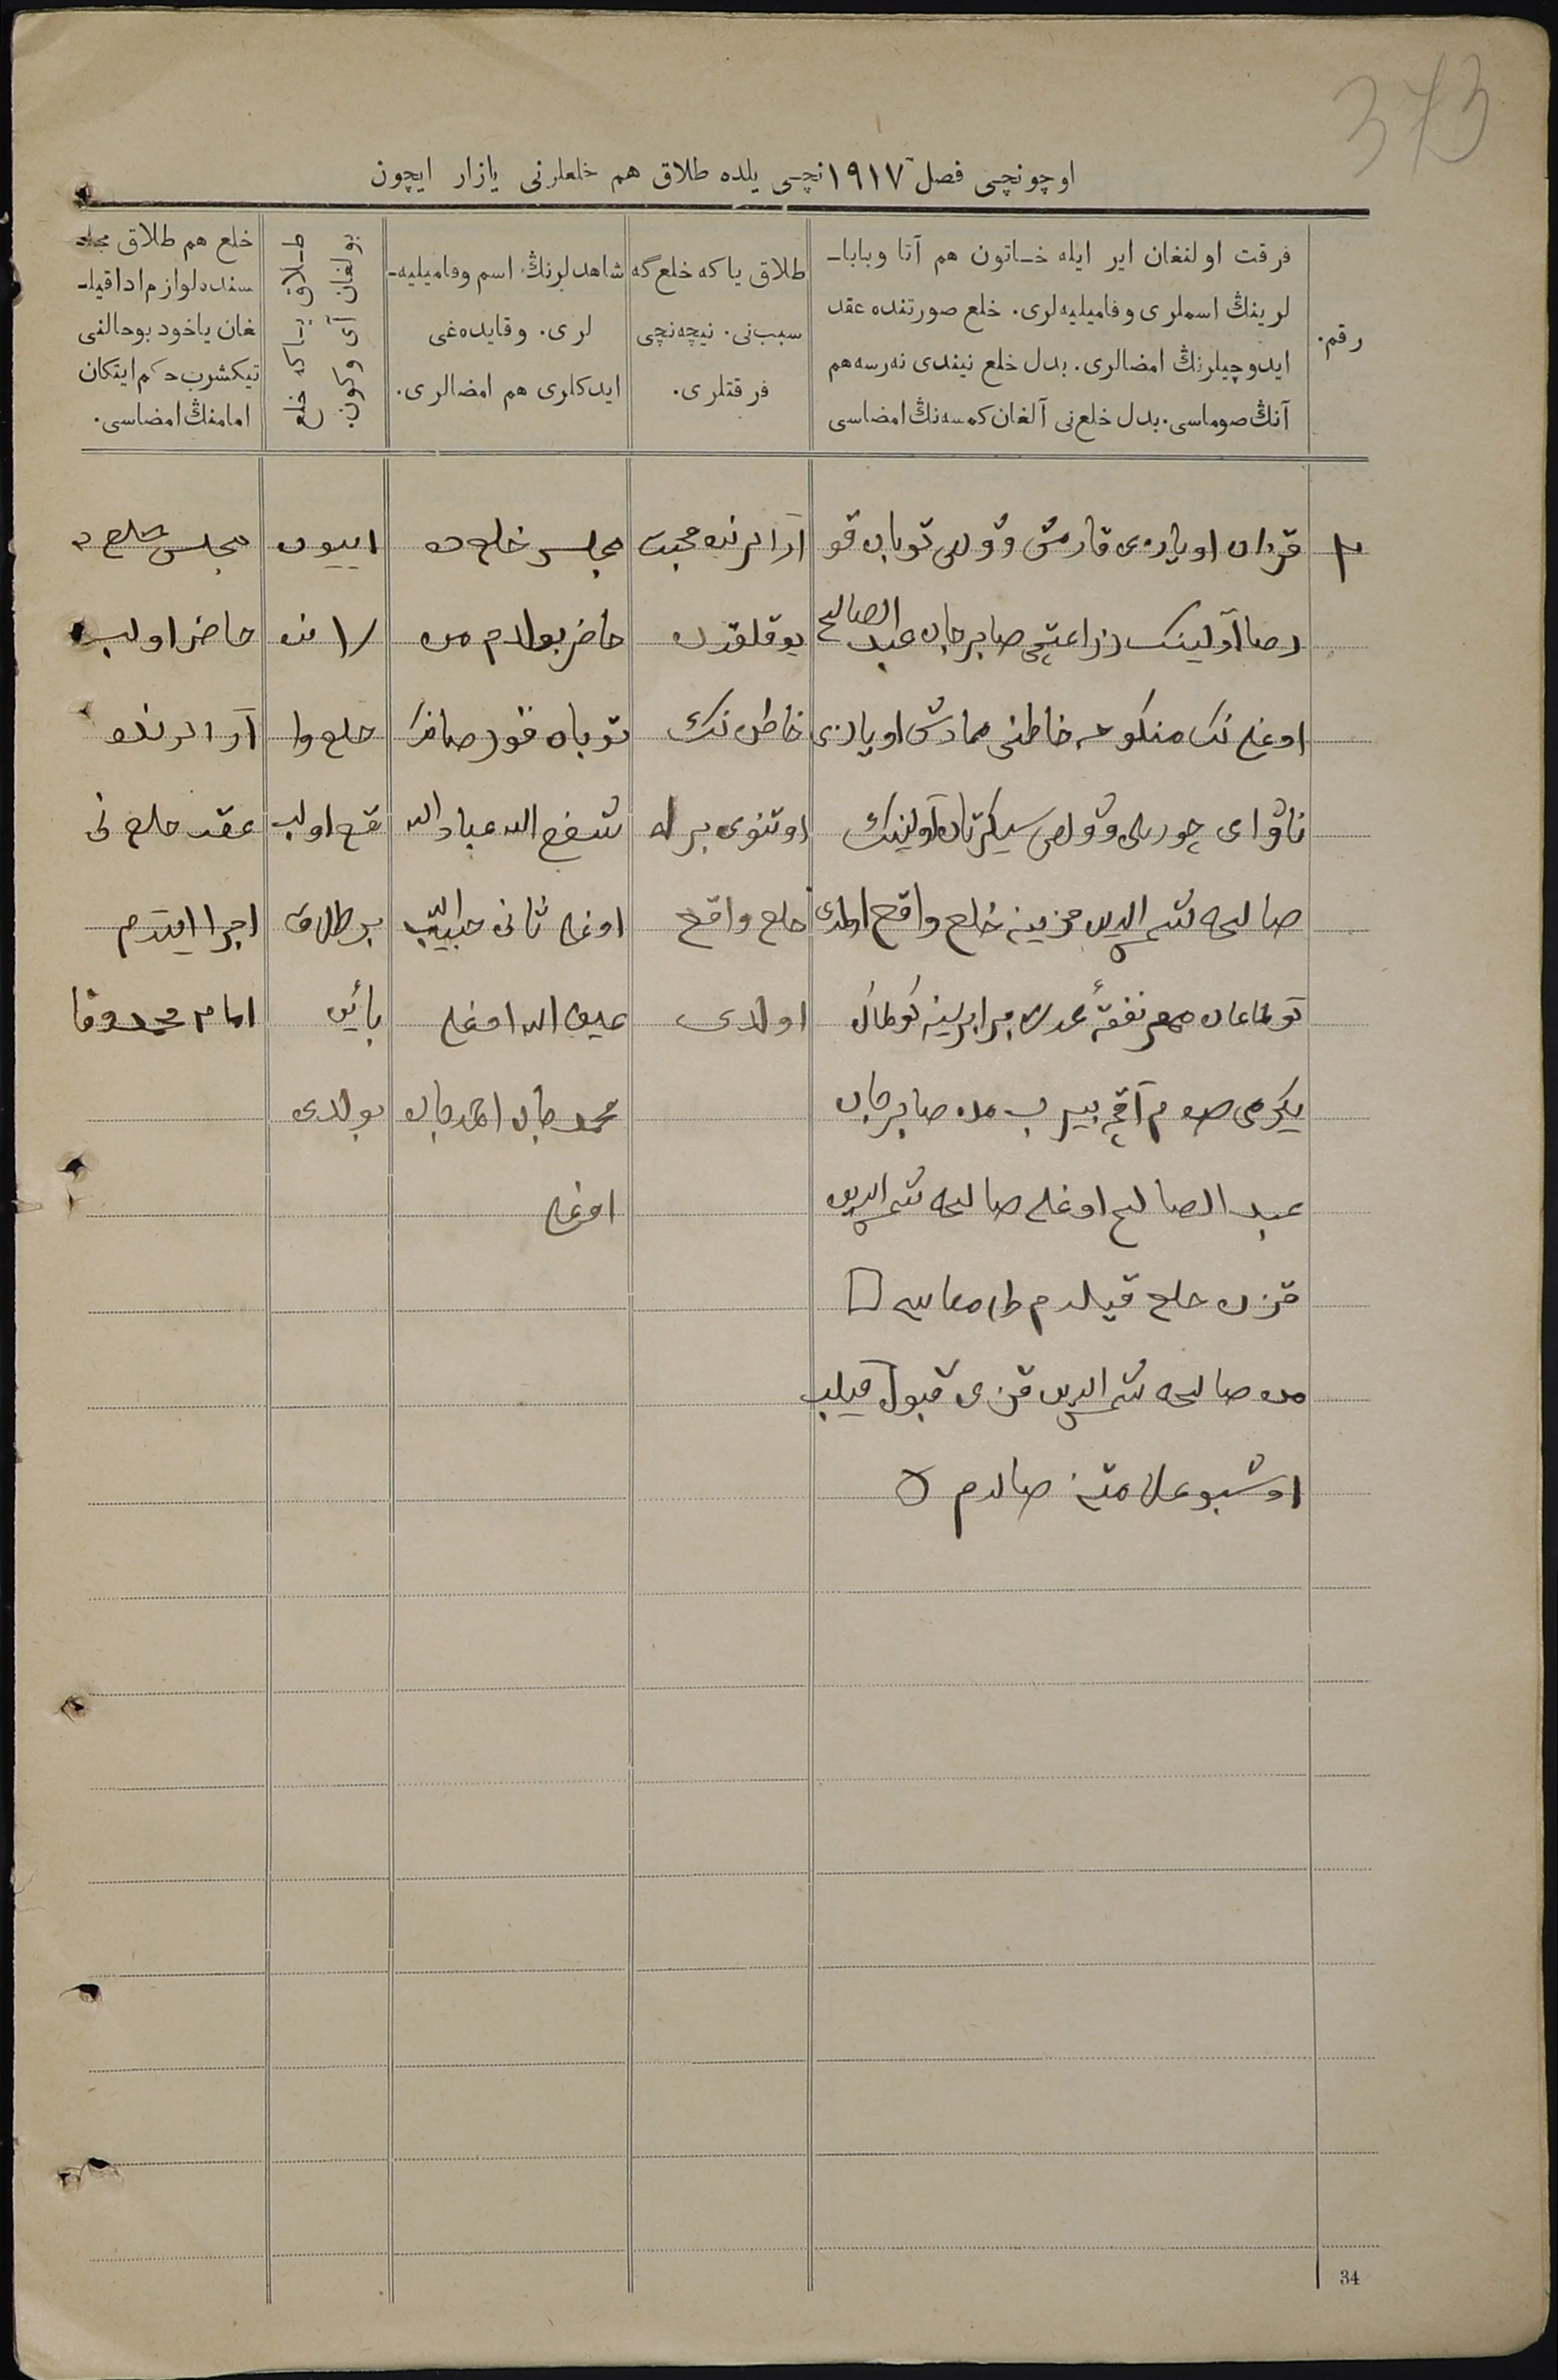 373
اوچونچی فصل ۱۹۱۷ نچی یلده طلاق هم خلعلرنی یازار ایچون
رقم.
فرقت اولنغان ایر ایله خاتون هم آتا وبابا-
لرینڭ اسملری وفامیلیه‌لری. خلع صورتنده عقد
ایدوچیلرنڭ امضالری. بدل خلع نیندی نه‌رسه هم
آنڭ صوماسی. بدل خلع‌نی آلغان کمسه‌نڭ امضاسی
طلاق یا که خلع گه
سبب‌نی. نیچه‌نچی
فرقتلری.
شاهدلرنڭ اسم وفامیلیه-
لری. وقایده‌غی
ایدکلری هم امضالری.
طلاق یاکه خلع
بولغان آی وکون.
خلع هم طلاق مجلـ
سنده لوازم ادا قیلـ
غان یاخود بوحالنی
تیکشرب حکم ایتکان
امامنڭ امضاسی.
۲
قزان اویازی قارمش وولس توبان قو
رصا آولینک زراعتچی صابرجان عبد الصالح
اوغلی نک منکوحه خاطنی ممادش اویازی
چوریلی وولس سیکرتان آولینک
صالحه شمس الدین قزینه خلع واقع اولدی
تولاماغان مهر نفقهٔ عدت برابرینه
یکرمی صوم آقچه بیرب من صابرجان
عبد الصالح اوغلی صالحه شمس الدین
قزن خلع قیلدم
من صالحه شمس الدین قزی قبول قیلب
اوشبو علامتنه صالدم
آرالرنده محبت
یوقلقدن
خاطن نک
اوتنوی برله
خلع واقع
اولدی
مجلس خلع ده
حاضر بولدم من
توبان قورصانک
شفیع الله عباد الله
اوغلی ثانی حبیب الله
اوغلی
محمد جان احمد جان
اوغلی
اییون
۱۷ نده
خلع وا
قع اولب
بر طلاق
بائن
بولدی
مجلس خلع ده
حاضر اولب
آرالرنده
عقد خلع نی
اجرا ایتدم
امام محمد وفا
34